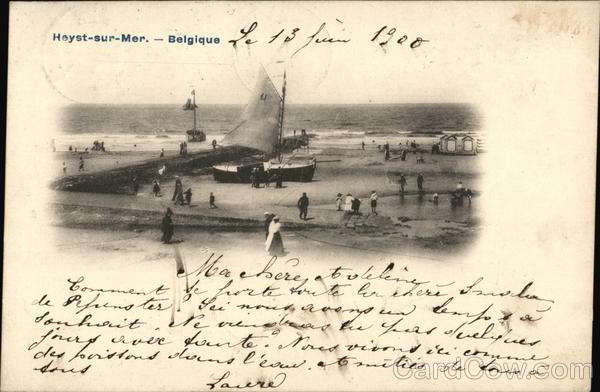 Heyst-sur-Mer. – Belgique
Le 13 Juin 1900
Ma chère
Comment se porte toute la chère
de Pepinster? Ici nous avons un temps à
souhait. Ne viendras tu pas quelques
jours avec tante. Nous vivons ici comme
des poissons dans l'eau.
tous
Laure
CardCow.com